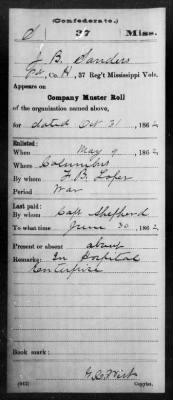 (Confederate.)
S 37 Miss.
J. B. Sanders
Co. H, 37 Reg't Mississippi Vols.
Appears on
Company Muster Roll
of the organization named above,
for dated Oct 31, 1862
Enlisted:
When May 9, 1862
Where Columbus
By whom J. B. Loper
Period War
Last paid:
By whom Capt Shepherd
To what time June 30, 1862
Present or absent absent
Remarks: In Hospital
Enterprise
Book mark:
(642) Copyist.